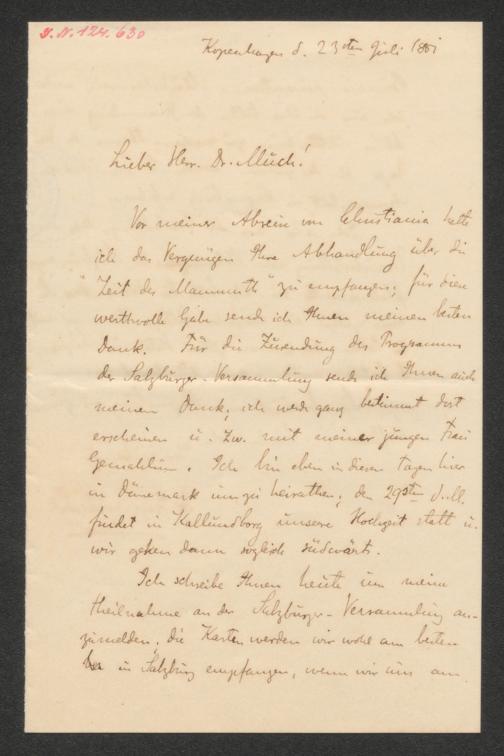 I.N. 124.630
Kopenhagen d. 23sten Juli 1881
Lieber Herr. Dr. Much!
Vor meiner Abreise von Christiania hatte
ich das Vergnügen Ihre Abhandlung über die
"Zeit des Mammuth" zu empfangen; für diese
werthvolle Gabe sende ich Ihnen meinen besten
Dank. Für die Zusendung des Programms
der Salzburger-Versammlung sende ich Ihnen auch
meinen Dank, ich werde ganz bestimmt dort
erscheinen u. zw. mit meiner jungen Frau
Gemahlin. Ich bin eben in diesen Tagen hier
in Dänemark um zu heirathen; den 29sten d. M.
findet in Kallundborg unsere Hochzeit statt u.
wir gehen dann sogleich südwärts.
Ich schreibe Ihnen heute um meine
theilnahme an der Salzburger-Versammlung an-
zumelden, die Karten werden wir wohl am besten
in Salzburg empfangen, wenn wir uns am